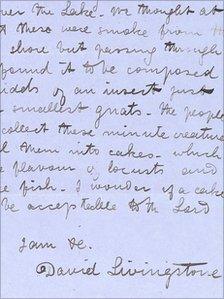 over the Lake. We thought at
these were smoke from
shore but passing through
found it to be composed
of an insect just
smallest gnats. The people
collect these minute creature
them into cakes - which
flavour of locusts and
fish - I wonder if a cake
be acceptable to the Lord
I am &c.
David Livingstone